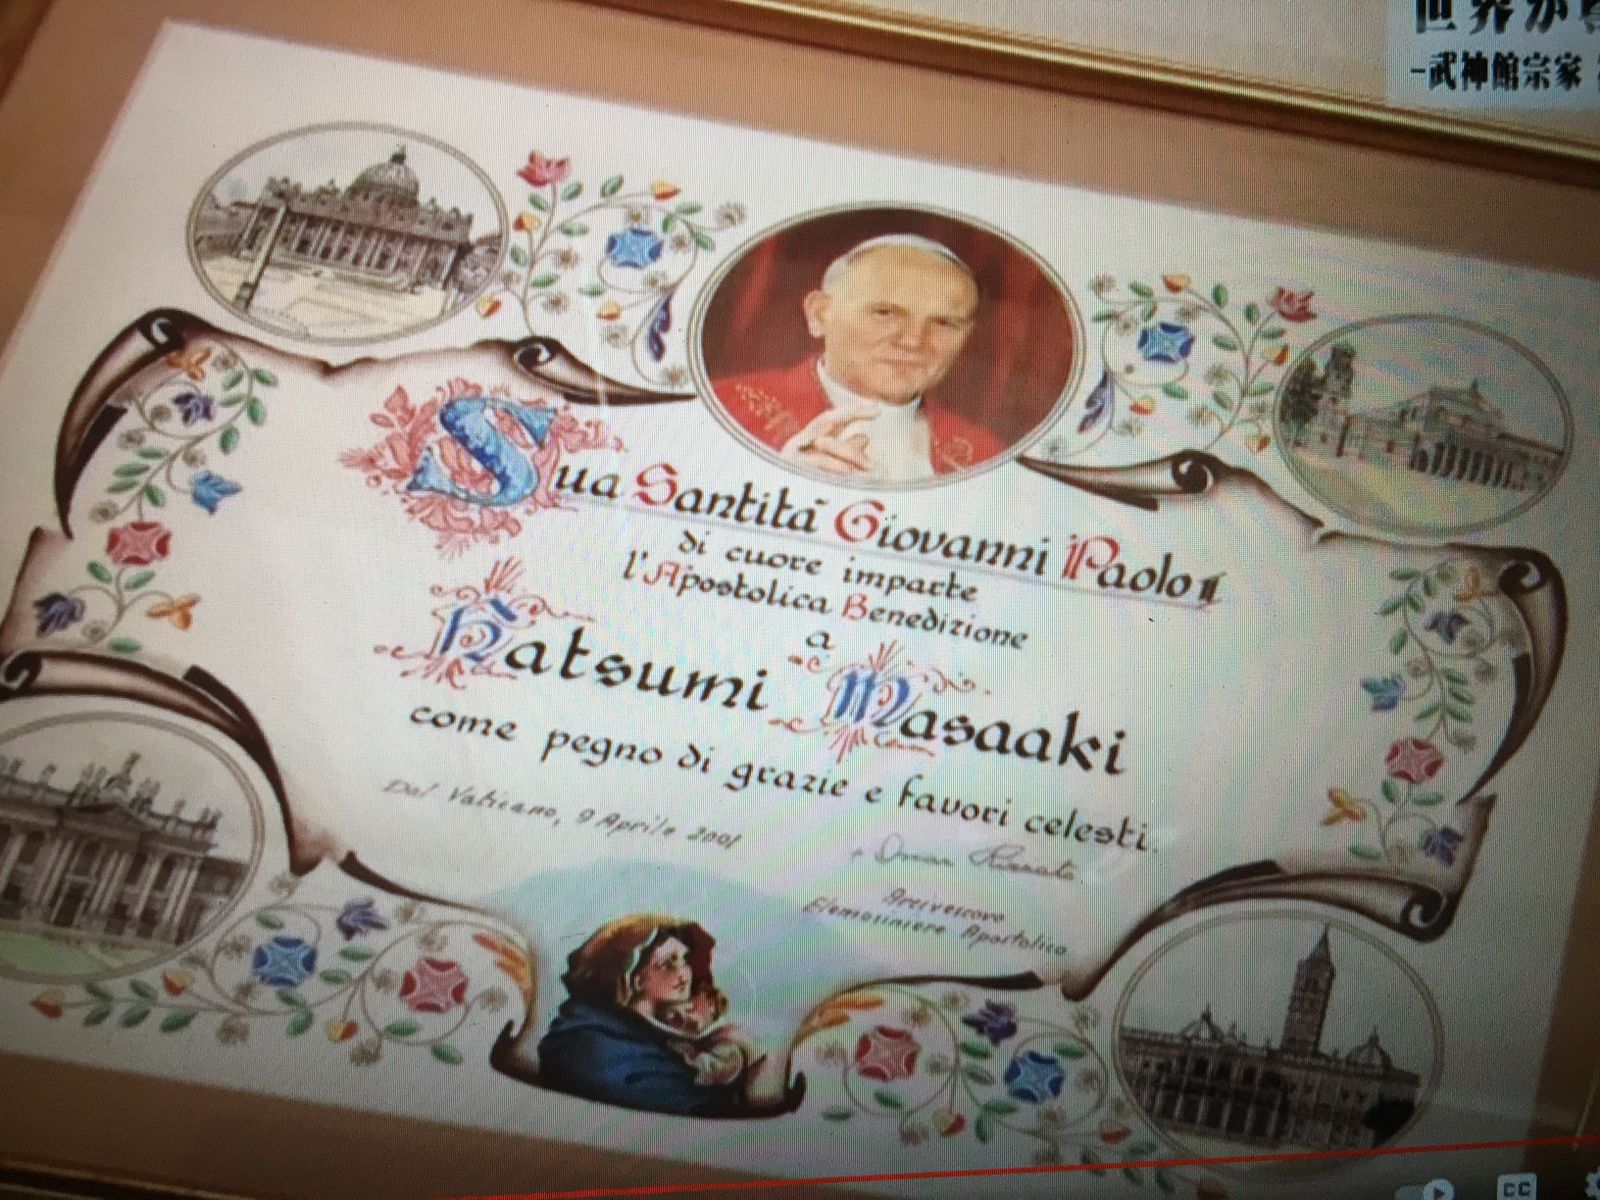 世界が
-武神館宗家
Sua Santità Giovanni Paolo II
di cuore imparte
l'Apostolica Benedizione
a
Hatsumi Masaaki
come pegno di grazie e favori celesti.
Dal Vaticano, 9 Aprile 2001
+ Oscar Rizzato
Arcivescovo
Elemosiniere Apostolico
CC